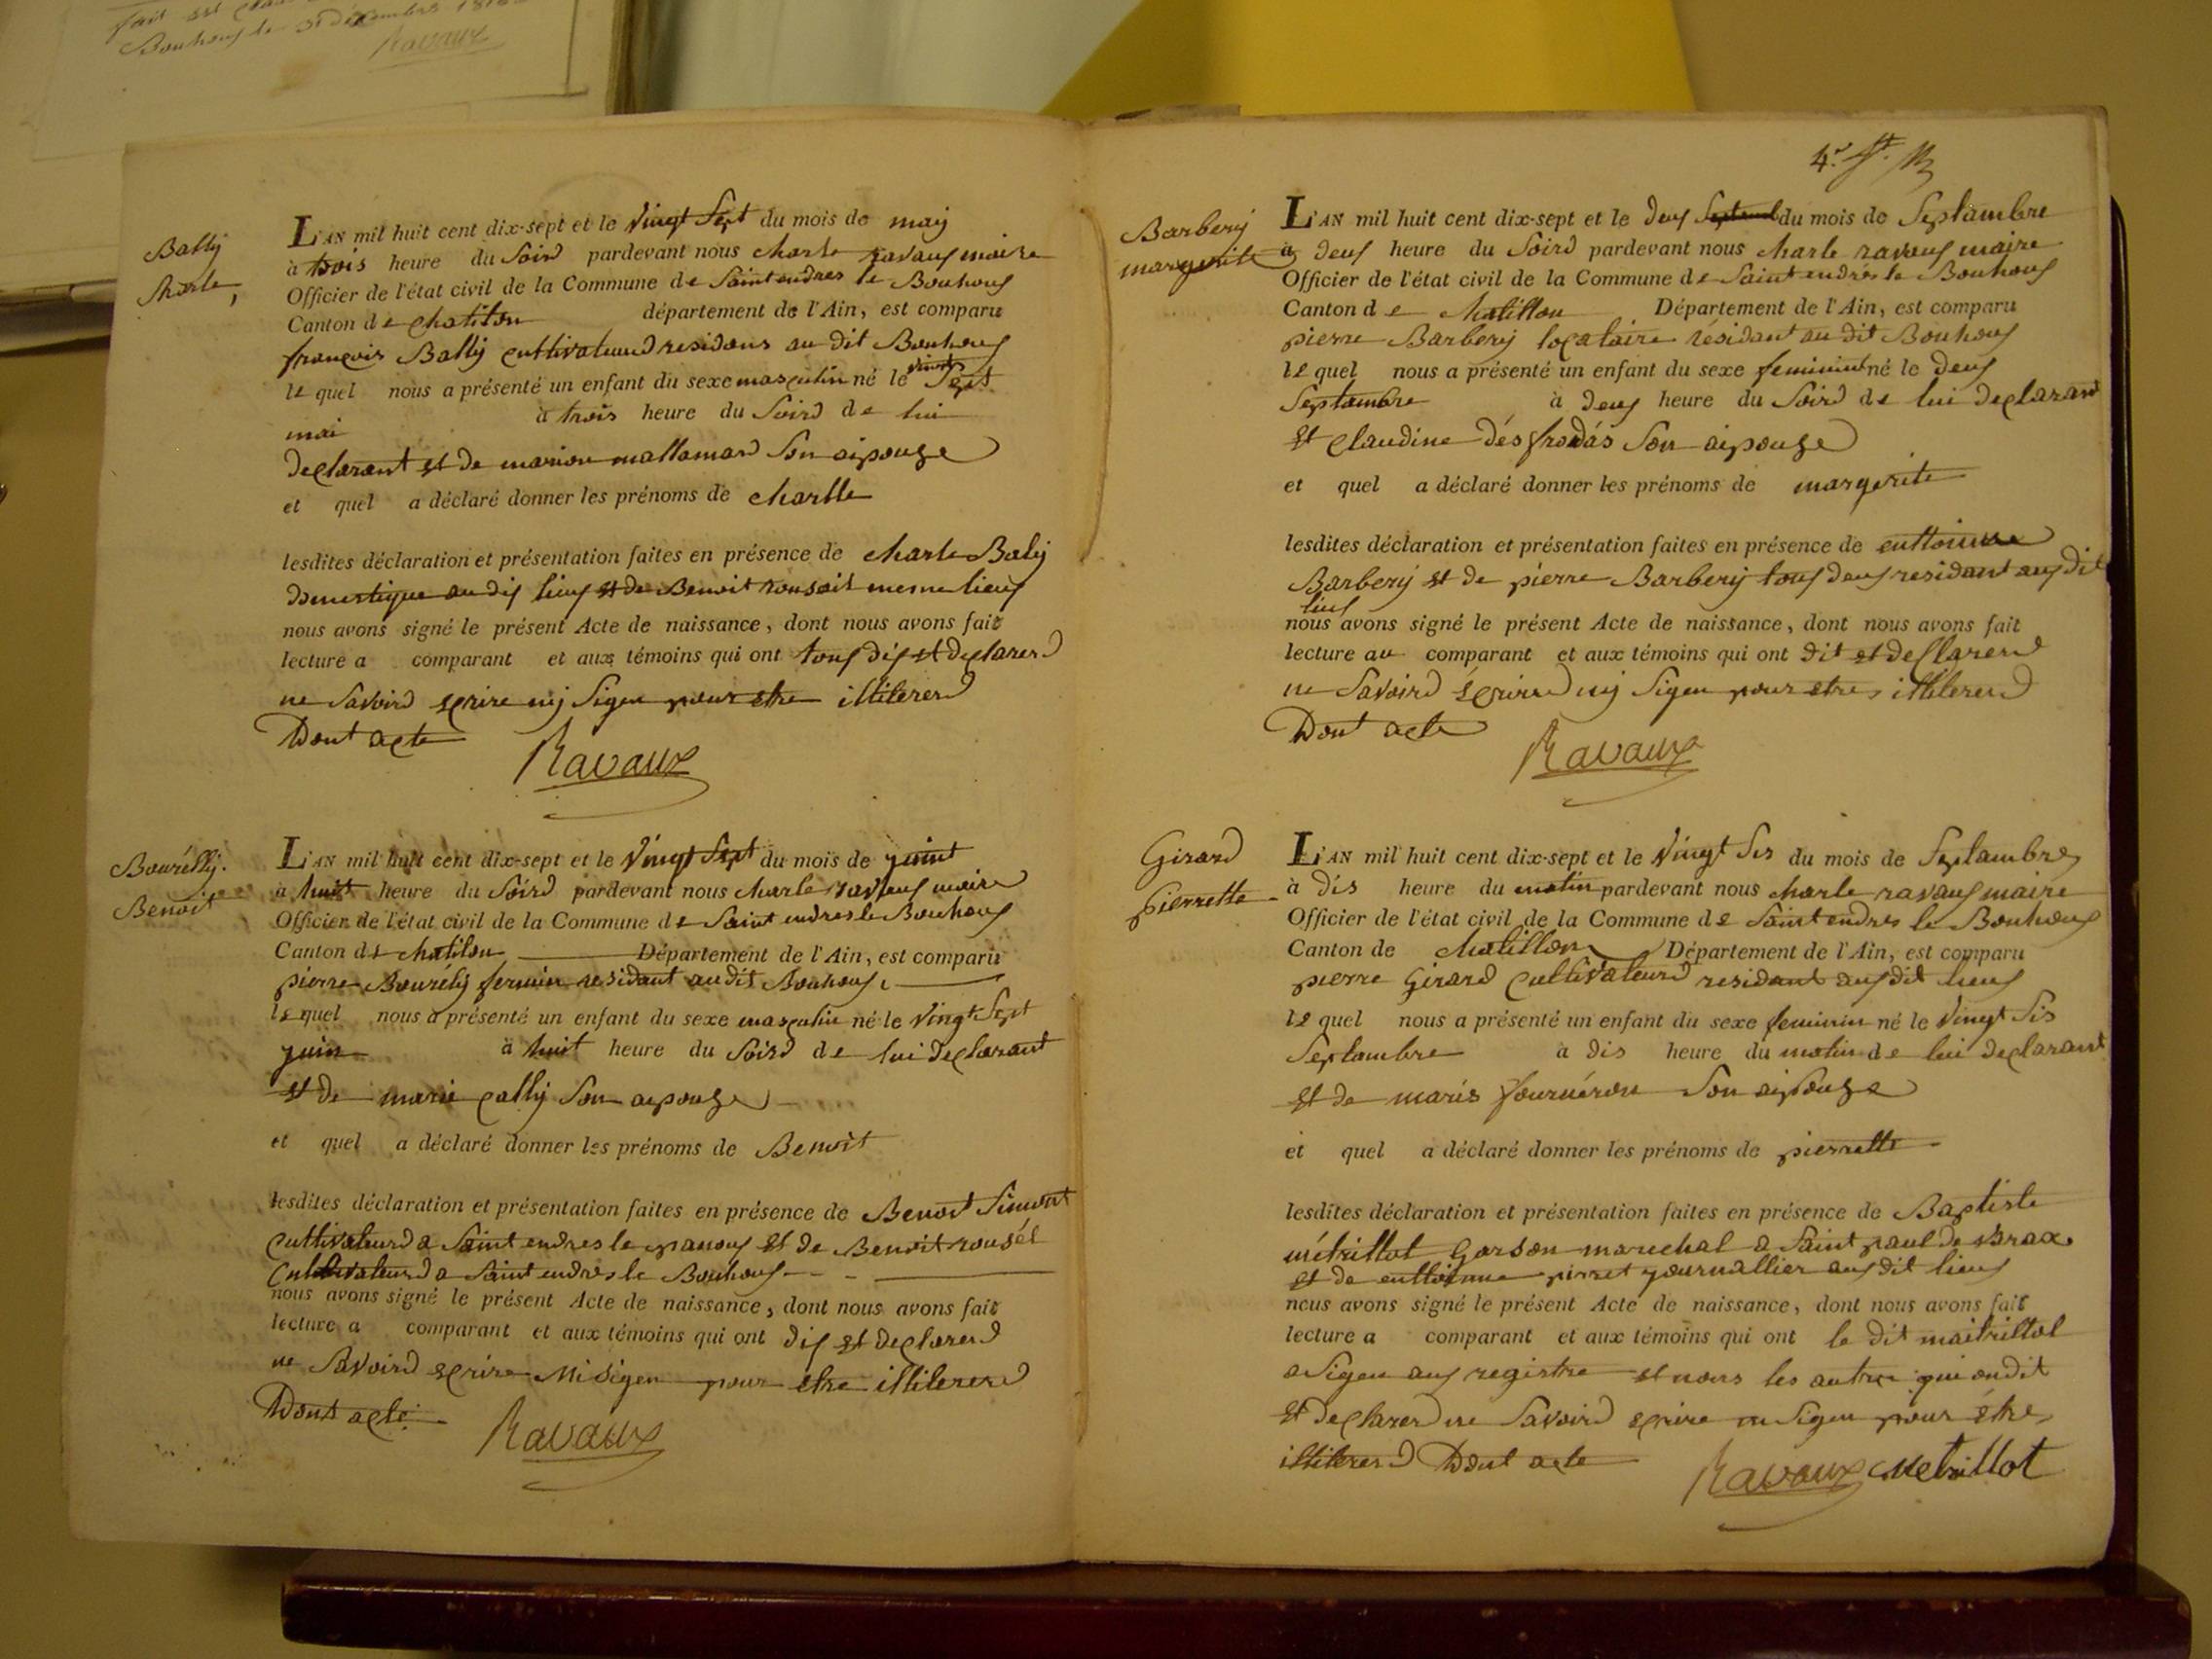 Bouhouy le 31 décembre
Ravaux
Bally
Charle,
L'AN mil huit cent dix-sept et le Vingt Sept du mois de maij
à trois heure du Soird pardevant nous charle ravauy maire
Officier de l'état civil de la Commune de Saint endres le Bouhouy
Canton de chatilon département de l'Ain, est comparu
françois Ballij cultivateurd residans au dit Bouhouy
le quel nous a présenté un enfant du sexe masculin né le vint Sept
mai à trois heure du Soird de lui
declarant et de marion mallamard Son aipouse
et quel a déclaré donner les prénoms de charlle
lesdites déclaration et présentation faites en présence de charle Balij
domestique au dis lieuy et de Benoit rousait meme lieuy
nous avons signé le présent Acte de naissance, dont nous avons fait
lecture a comparant et aux témoins qui ont touy dis et declarerd
ne Savoird ecrire nij Signe pour etre illiterers
Dont acte
Ravaux
Bourélly.
Benoit
L'AN mil huit cent dix-sept et le Vingt Sept du mois de juint
à huit heure du Soird pardevant nous charle ravauy maire
Officier de l'état civil de la Commune de Saint endres le Bouhouy
Canton de chatilon Département de l'Ain, est comparu
pierre Bourélij fermin residant au dit Bouhouy
le quel nous a présenté un enfant du sexe masculin né le Vingt Sept
juin à huit heure du Soird de lui declarant
et de marie callij Son aipouse
et quel a déclaré donner les prénoms de Benoit
lesdites déclaration et présentation faites en présence de Benoit Simont
cultivateurd a Saint endres le panouy et de Benoit rousél
Cultivateurd a Saint endres le Bouhouy
nous avons signé le présent Acte de naissance, dont nous avons fait
lecture a comparant et aux témoins qui ont dis et declarerd
ne Savoird ecrire ni Signe pour etre illiterers
Dont acte
Ravaux
4.
Barberij
margerite
L'AN mil huit cent dix-sept et le deuy Septemb du mois de Septambre
à deuy heure du Soird pardevant nous charle ravauy maire
Officier de l'état civil de la Commune de Saint endrés le Bouhouy
Canton de chatillon Département de l'Ain, est comparu
pierre Barberij locataire résidant au dit Bouhouy
le quel nous a présenté un enfant du sexe feminint né le deuy
Septambre à deuy heure du Soird de lui declarant
et claudine désfrodás Son aipouse
et quel a déclaré donner les prénoms de margerite
lesdites déclaration et présentation faites en présence de enttoinne
Barberij et de pierre Barberij touy deuy residant auy dit
lieuy
nous avons signé le présent Acte de naissance, dont nous avons fait
lecture au comparant et aux témoins qui ont dit et declarerd
ne Savoird écrired nij Signe pour etre illiterers
Dont acte
Ravaux
Girard
pierrette
L'AN mil huit cent dix-sept et le Vingt Sis du mois de Septambre
à dis heure du matin pardevant nous charle ravauy maire
Officier de l'état civil de la Commune de Saint endres le Bouhouy
Canton de chatillon Département de l'Ain, est comparu
pierre Girard cultivateurd residant auy dit lieuy
le quel nous a présenté un enfant du sexe feminin né le Vingt Sis
Septambre à dis heure du matin de lui declarant
et de maris fournéron Son aipouse
et quel a déclaré donner les prénoms de pierrette
lesdites déclaration et présentation faites en présence de Baptiste
métrillot Garson marechal a Saint paul de Varax
et de enttoinne pirret journallier auy dit lieuy
nous avons signé le présent Acte de naissance, dont nous avons fait
lecture a comparant et aux témoins qui ont le dit maitrillot
a Signe auy registre et nons les autre qui on dit
et declarerd ne Savoird ecrire ni Signe pour étre
illiterers Dont acte
Ravaux Metrillot